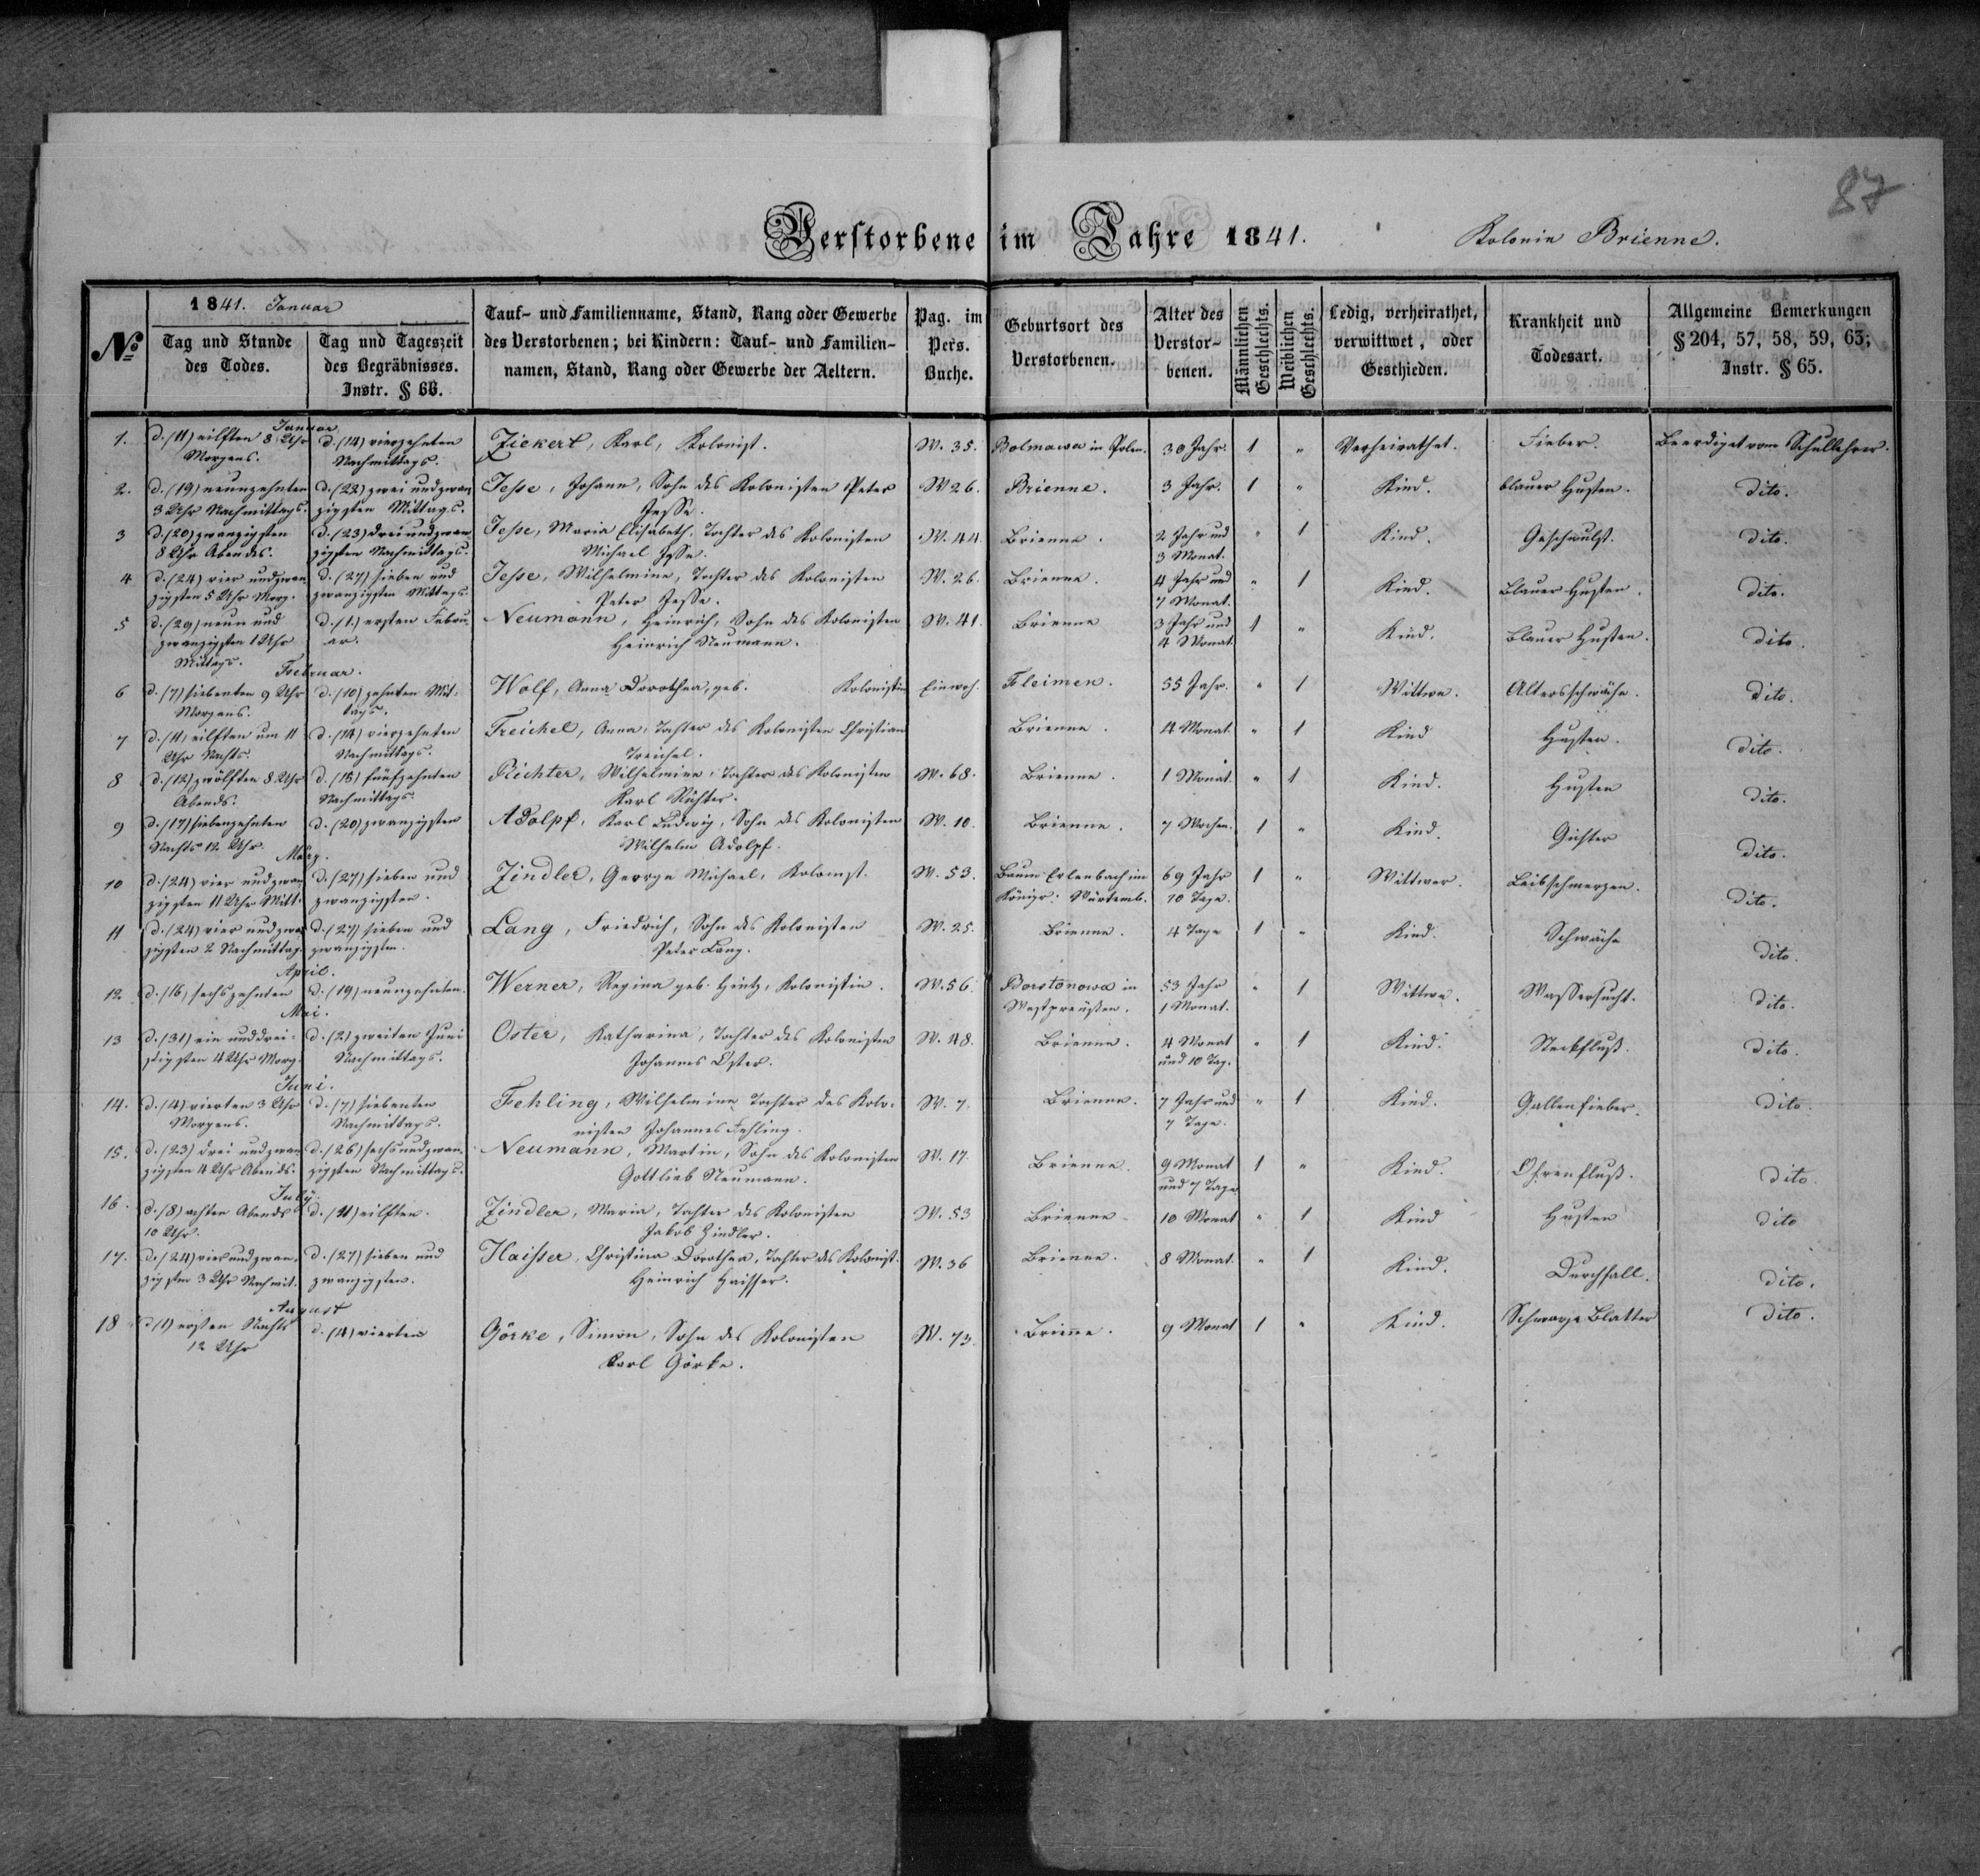 87
Verstorbene im Jahre 1841. Kolonie Brienne.
1841. Januar
№
Tag und Stunde des Todes.
Tag und Tageszeit des Begräbnisses. Instr. § 66.
Tauf- und Familienname, Stand, Rang oder Gewerbe
des Verstorbenen; bei Kindern: Tauf- und Familien-
namen, Stand, Rang oder Gewerbe der Aeltern.
Pag. im Pers. Buche.
Geburtsort des Verstorbenen.
Alter des Verstor-benen.
Männlichen Geschlechts.
Weiblichen Geschlechts.
Ledig, verheirathet, verwittwet, oder Geschieden.
Krankheit und Todesart.
Allgemeine Bemerkungen § 204, 57, 58, 59, 63; Instr. § 65.
Januar
1. d. (11) eilften 8 Uhr d. (14) vierzehnten Ziekert, Karl, Kolonist. W. 35. Bolmawa in Polen. 30 Jahr. 1 " Verheirathet. Fieber. Beerdiget vom Schullehrer.
Morgens. Nachmittags.
2. d. (19) neunzehnten d. (22) zwei und zwan Jesse, Johann, Sohn des Kolonisten Peter W 26. Brienne. 3 Jahr. 1 " Kind. blauer Husten. dito.
3 Uhr Nachmittags. zigsten Mittags. Jesse.
3 d. (20) zwanzigsten d. (23) drei und zwan Jesse, Maria Elisabeth, Tochter des Kolonisten W. 44. Brienne. 2 Jahr und " 1 Kind. Geschwulst. dito.
8 Uhr Abends. zigsten Nachmittags. Michael Jesse. 3 Monat.
4 d. (24) vier und zwan d. (27) sieben und Jesse, Wilhelmine, Tochter des Kolonisten W. 26. Brienne. 4 Jahr und " 1 Kind. Blauer Husten. dito.
zigsten 5 Uhr Morg. zwanzigsten Mittags. Peter Jesse. 7 Monat.
5 d. (29) neun und d. (1.) ersten Febru- Neumann, Heinrich, Sohn des Kolonisten W. 41. Brienne 3 Jahr und 1 " Kind. Blauer Husten. dito.
zwanzigsten 1 Uhr ar. Heinrich Neumann. 4 Monat.
Mittags.
Februar.
6 d. (7) siebenten 9 Uhr d. (10) zehnten Mit- Wolf, Anna Dorothea, geb. Kolonistin Einwoh. Fleimen. 55 Jahr. " 1 Wittwe. Altersschwäche. dito.
Morgens. tags.
7 d. (11) eilften um 11 d. (14) vierzehnten Treichel, Anna, Tochter des Kolonisten Christian Brienne. 4 Monat. " 1 Kind Husten. dito.
Uhr Nachts. Nachmittags. Treichel.
8 d. (12) zwölften 8 Uhr d. (15) fünfzehnten Richter, Wilhelmine, Tochter des Kolonisten W. 68. Brienne. 1 Monat. " 1 Kind. Husten dito.
Abends. Nachmittags. Karl Richter.
9 d. (17) siebenzehnten d. (20) zwanzigsten Adolpf, Karl Ludwig, Sohn des Kolonisten W. 10. Brienne. 7 Wochen. 1 " Kind. Gichter dito.
Nachts 12 Uhr. Wilhelm Adolpf.
März.
10 d. (24) vier und zwan d. (27) sieben und Zindler, George Michael, Kolonist. W. 53. Erlenbach im 69 Jahr 1 " Wittwer. Leibschmerzen. dito.
zigsten 11 Uhr Mitt. zwanzigsten. Königr: Würtemb. 10 Tage.
11 d. (24) vier und zwa d. (27) sieben und Lang, Friedrich, Sohn des Kolonisten W. 25. Brienne. 4 Tage 1 " Kind. Schwäche dito.
zigsten 2 Nachmittag. zwanzigsten. Peter Lang.
April.
12. d. (16) sechszehnten d. (19) neunzehnten. Werner, Regina geb. Hintz, Kolonistin. W. 56. Borstonowa in 53 Jahr " 1 Wittwe. Wassersucht. dito.
Westpreußen. 1 Monat.
Mai.
13 d. (31) ein und drei- d. (2) zweiten Juni Oster, Katharina, Tochter des Kolonisten W. 48. Brienne. 4 Monat " 1 Kind. Steckfluß. dito.
ßigsten 4 Uhr Morg. Nachmittags. Johannes Oster. und 10 Tag.
Juni.
14. d. (4) vierten 3 Uhr d. (7) siebenten Fehling, Wilhelmine Tochter des Kolo- W. 7. Brienne. 7 Jahr und " 1 Kind. Gallenfieber. dito
Morgens. Nachmittags. nisten Johannes Fehling. 7 Tage.
15. d. (23) drei und zwan d. (26) sechs und zwan Neumann, Martin, Sohn des Kolonisten W. 17. Brienne. 9 Monat 1 " Kind. Ohrenfluß. dito.
zigsten 4 Uhr Abends. zigsten Nachmittags. Gottlieb Neumann. und 7 Tage
July
16. d. (8) achten Abends d. (11) eilften. Zindler, Maria, Tochter des Kolonisten W. 53 Brienne 10 Monat " 1 Kind Husten dito
10 Uhr. Jakob Zindler.
17. d. (24) vier und zwan d. (27) sieben und Haisser, Christina Dorothea, Tochter des Kolonist. W. 36 Brienne. 8 Monat. " 1 Kind. Durchfall. dito.
zigsten 3 Uhr Nachmit. zwanzigsten. Heinrich Haisser.
August
18 d. (1) ersten Nachts d. (4) vierten Görke, Simon, Sohn des Kolonisten W. 73. Brienne. 9 Monat 1 " Kind. Schwarze Blatter dito.
12 Uhr Karl Görke.